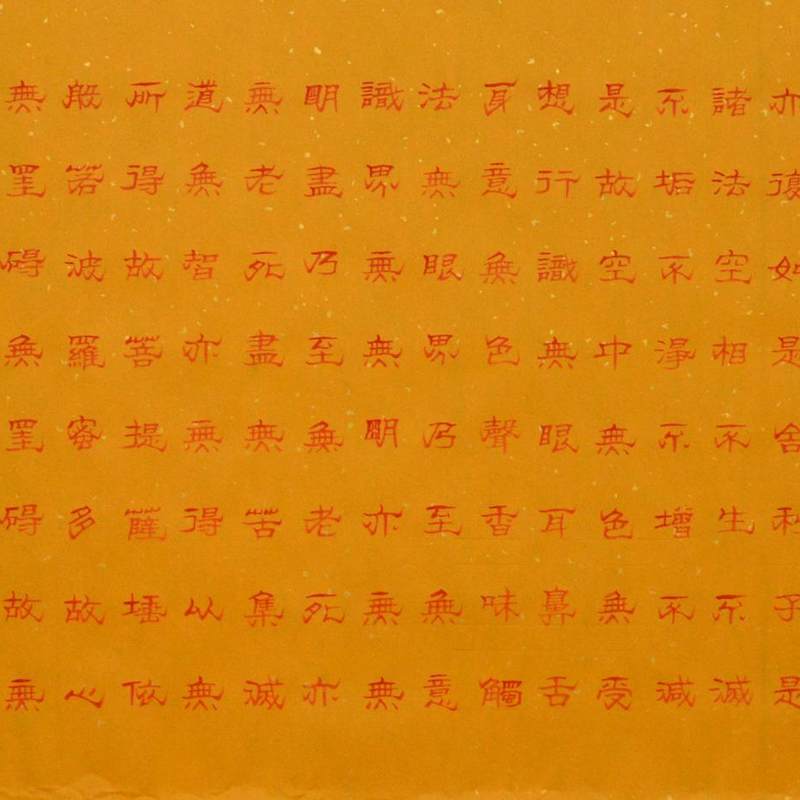 亦復如是舍利子是
諸法空相不生不滅
不垢不淨不增不減
是故空中無色無受
想行識無眼耳鼻舌
身意無色聲香味觸
法無眼界乃至無意
識界無無明亦無無
明盡乃至無老死亦
無老死盡無苦集滅
道無智亦無得以無
所得故菩提薩埵依
般若波羅蜜多故心
無罣碍無罣碍故無